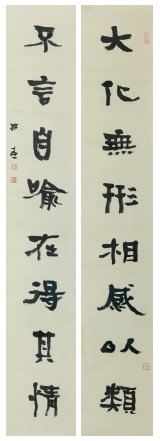 大化無形相感以類
不言自喻在得其情